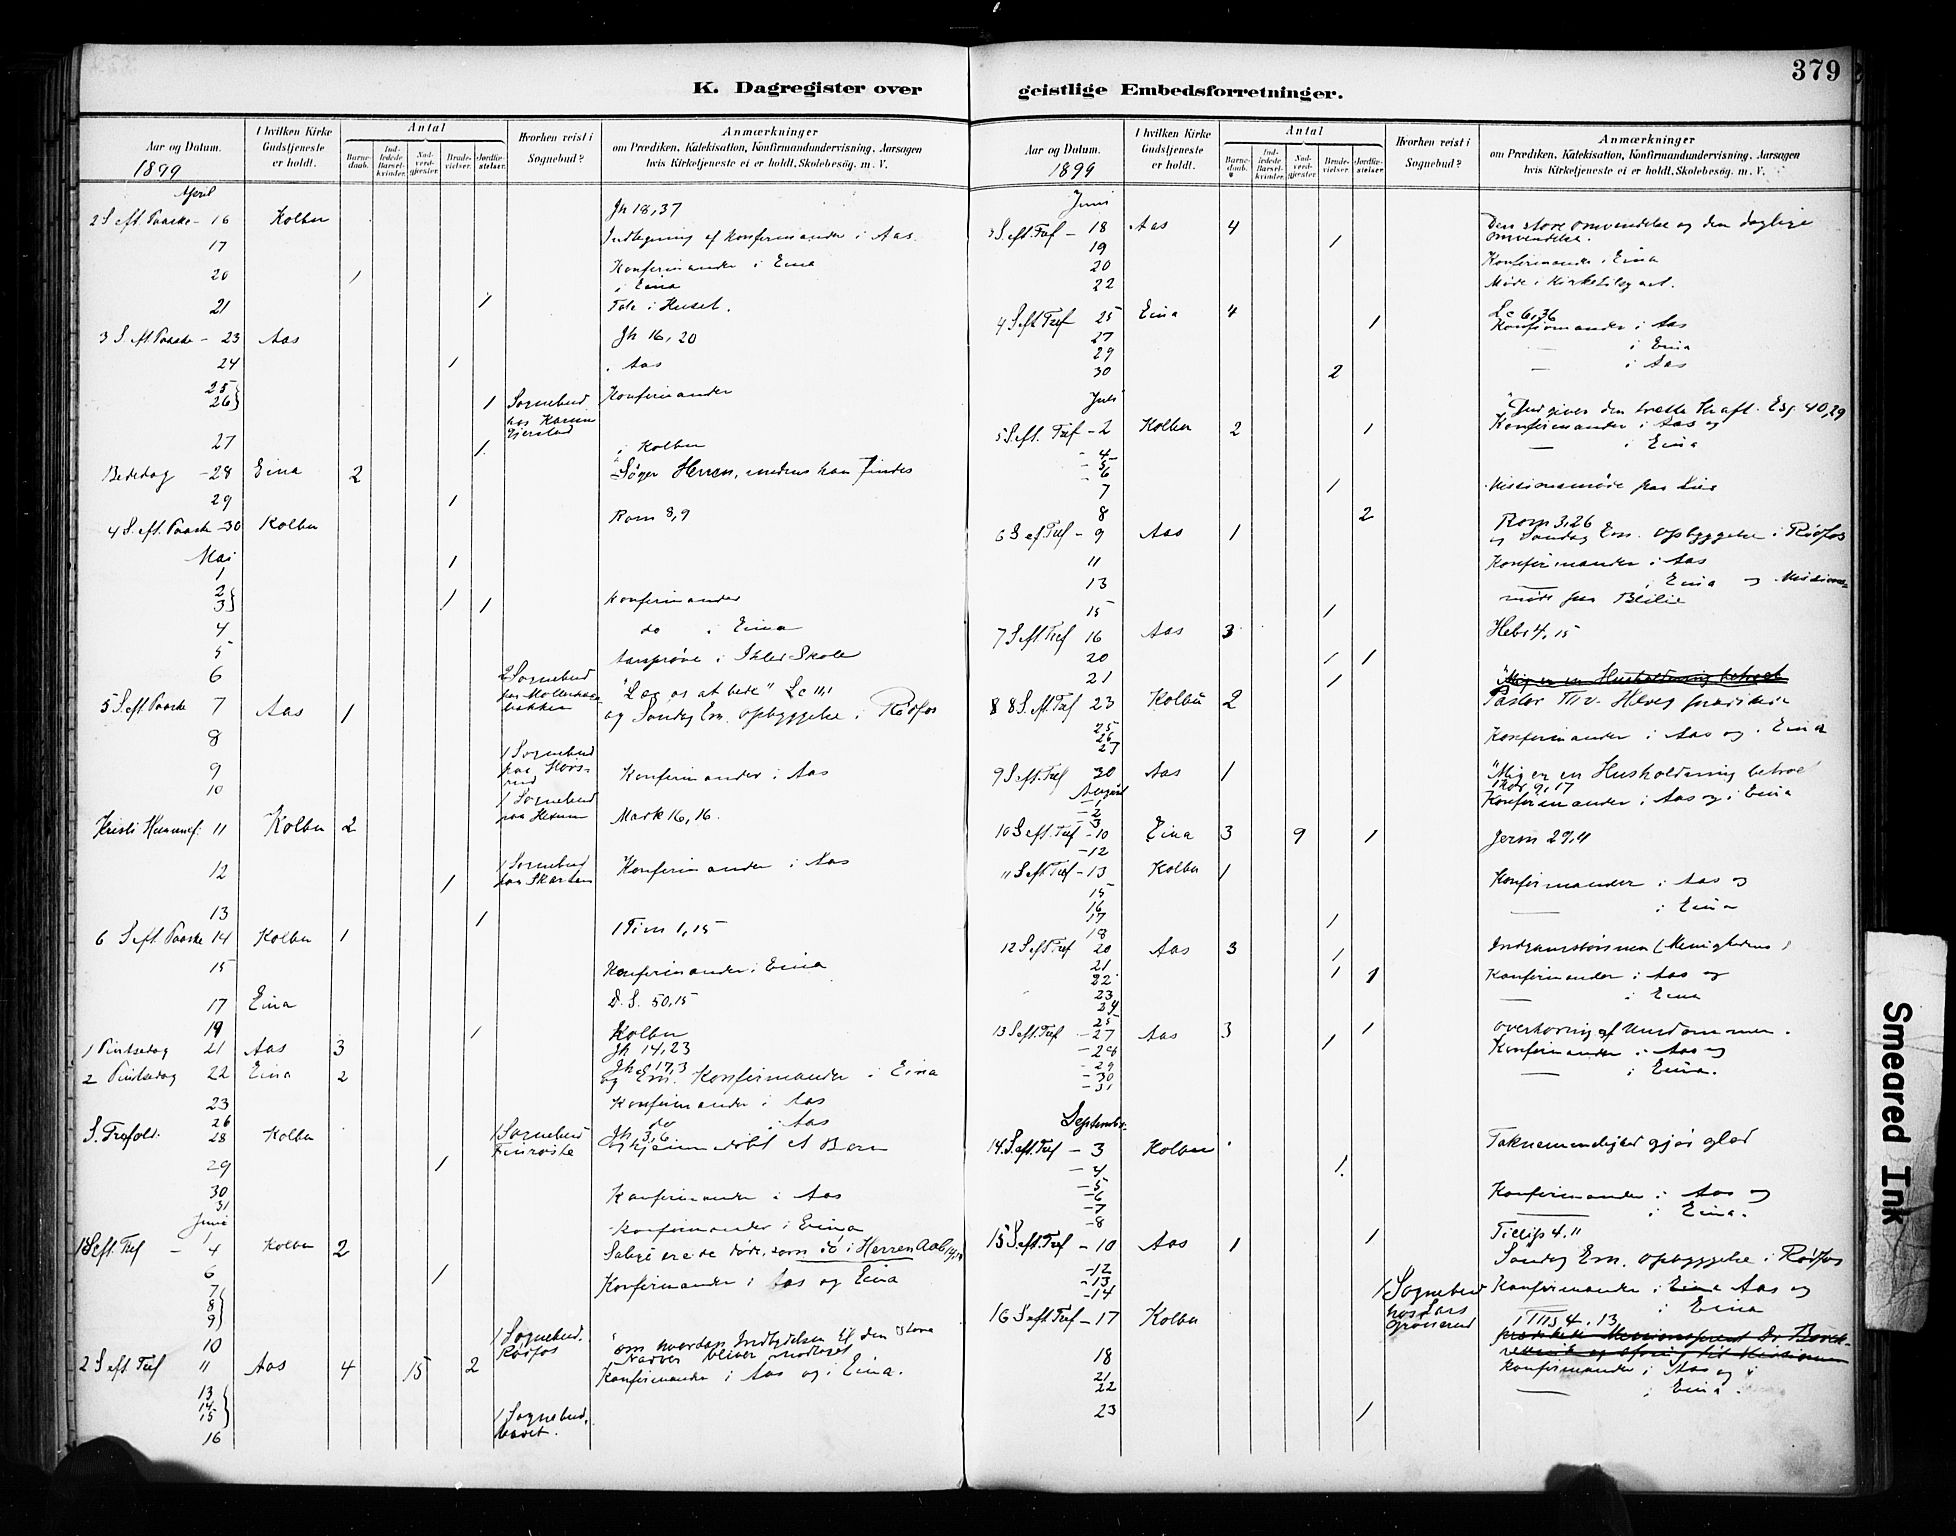 379
K. Dagregister over
geistlige Embedsforretninger.
Aar og Datum.
I hvilken Kirke Gudstjeneste er holdt.
Antal
Barnedaab.
Indledede Barselkvinder.
Nadverdgjester.
Brudevielser.
Jordfæstelser.
Hvorhen reist i Sognebud?
Anmærkninger
om Prædiken, Katekisation, Konfirmandundervisning, Aarsagen
hvis Kirketjeneste ei er holdt, Skolebesøg. m. V.
1899
April
2 S eft. Paaske - 16 Kolbu Jh 18,37
17 Indtegning af Konfirmander i Aas.
20 1 Konfirmander i Eina
i Eina
21 1 Tale i Huset.
3 S. eft Paaske - 23 Aas Jh 16,20
24 1 Aas
25
26 1 Sognebud hos Karen Konfirmander
27 1 i Kolbu
Bededag - 28 Eina 2 Søger Herren, medens han findes
29 1
4 S. eft. Paaske - 30 Kolbu Rom 8,9
Mai
1 1
2
3 1 1 Konfirmander
4 do i Eina
5 Aarsprøve i Skole
6 2 Sognebud
5 S eft Paaske 7 Aas 1 "Lær os at bede" Lc 11,1
og Søndag Em. opbyggelse i Rødfos
8 1 Sognebud
9 Konfirmander i Aas
10 1 Sognebud
Kristi Himmelf. 11 Kolbu 2 Mark 16,16.
12 1 1 Sognebud Konfirmander i Aas
13 1
6 S eft. Paaske 14 Kolbu 1 1 Tim 1,15
15 Konfirmander i Eina
17 Eina D. S. 50,15
19 1 Kolbu
1 Pintsedag 21 Aas 3 Jh 14,23
2 Pintsedag 22 Eina 2 Jh 17,3
og Em. Konfirmander i Eina
23 Konfirmander i Aas
26 do i Aas
S. Trefold. 28 Kolbu 1 Sognebud Jh 3,6.
Hjemmedøbt et Barn
29 1
30 Konfirmander i Aas
31
Juni
1 Konfirmander i Eina
1 S eft. Tref - 4 Kolbu 2 Salige ere de døde, som dø i Herren
6 1
7 Konfirmander i Aas og Eina
8
9
10 1 Sognebud. Rødfos
2 S eft Tref 11 Aas 4 15 2 om hvordan Indbydelsen til den store
Nadver bliver modtaget
13 Konfirmander i Aas og i Eina.
14
15 1 Sognebud,
16
Aar og Datum.
I hvilken Kirke Gudstjeneste er holdt.
Antal
Barnedaab.
Indledede Barselkvinder.
Nadverdgjester.
Brudevielser.
Jordfæstelser.
Hvorhen reist i Sognebud?
Anmærkninger
om Prædiken, Katekisation, Konfirmandundervisning, Aarsagen
hvis Kirketjeneste ei er holdt, Skolebesøg. m. V.
1899
Juni
3 S. eft. Tref - 18 Aas 4 Den store omvendelse og den daglige
omvendelse.
19 1
20 Konfirmander i Eina
22 Møde i Kirketilsynet.
4 S eft Tref 25 Eina 4 1 Lc 6,36
27 Konfirmander i Aas
29 — i Eina
30 2 — i Aas
Juli
5 S eft. Tref - 2 Kolbu 2 1 "Gud giver den trætte Kraft. Esj. 40,29
4 Konfirmander i Aas og
5 — i Eina
6
7 1 Missionsmøde paa Lier
8 2
6 S ef. Tref - 9 Aas 1 Rom 3,26
og Søndag Em. opbyggelse i Rødfos
11 Konfirmander i Aas
13 — i Eina og Missions-
møde paa
15 1
7 S eft Tref 16 Aas 3 Hebr 4,15
20 1 1
21 1
"Mig er en Husholdning betroet
8 S. eft Tref 23 Kolbu 2 Pastor
25 Konfirmander i Aas og i Eina
26
27
9 S eft. Tref 30 Aas 1 "Mig er en Husholdning betroet
1 Kor 9,17
August
1 Konfirmander i Aas og i Eina
2
3
10 S eft. Tref - 10 Eina 3 9 1 Jerm 29,11
12
11 S eft. Tref - 13 Kolbu 1
15 Konfirmander i Aas og
16 — i Eina
17 1
18
12 S eft Tref 20 Aas 3 1
21 1 1 Konfirmander i Aas og
22 — i Eina
23
24
25 1
13 S eft. Tref - 27 Aas 3 1 overhøring af Ungdommen.
28 Konfirmander i Aas og
29 — i Eina.
30
31
September
14 S. eft. Tref - 3 Kolbu Taknemmelighed gjør glad
4 1
5
6 Konfirmander i Aas og
7 — i Eina.
8
15 S eft. Tref - 10 Aas 1 1 Filip 4.11
Søndag Em. opbyggelse i Rødfos
12 1 Sognebud hos Lars Konfirmander i Eina Aas og
13 — i Eina
14
16 S eft Tref - 17 Kolbu
18 Konfirmander i Aas og
21 — i Eina
22
23 1
Smeared Ink